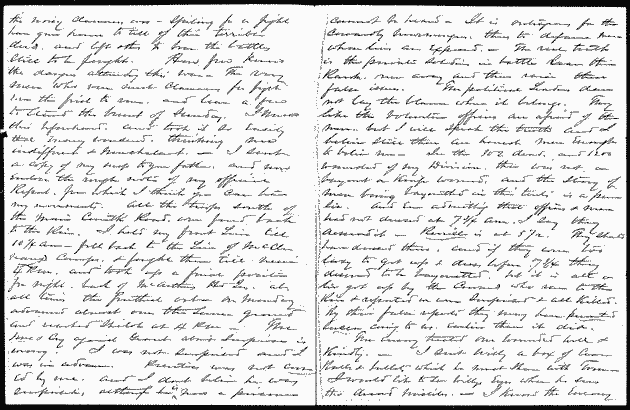 the noisy clamorous ones - Spoiling for a fight
have gone home to tell of the terrible
deeds, and left others to the battles
still to be fought. How few knew
the dangers attending this war - The very
men who were such clamorous for fight
were the first to run, and leave a few
to the brunt of Sunday. I knew
this beforehand, and took it so easily
that many wondered, thinking me
indifferent & nonchalant. I sent
a copy of my map to your father, and now
enclose the rough notes of my official
Report, from which I think you can
my movements. All the troops south of
the Main Corinth Road were forced back
to the River. I held my front Line till
10½ A.M. - fell back to the Line of McCler
nand's Camps, & fought them till near
4 P.M. and took up a final position
for night, back of McArthurs Hd Qrs. at
all times the furthest out on Monday
advanced almost over the same ground
and reached Shiloh at 4 P.M. - The
against Grant about surprise is
wrong. I was not surprised and I
was in advance. Prentiss was not
ed by me, and I dont believe he was
surprised, although he is now a prisoner
cannot be heard. It is outrageous for the
cowardly newsmongers thus to defame men
whose lives are exposed. The real truth
is the private Soldiers in battle leave their
Ranks, run away and then raise these
false issues. The political Leaders dare
not lay the blame where it belongs. They
like the volunteer officers are afraid of the
men, but I will speak the truth and I
believe still there are honest men enough
to believe me. In the 300 dead and 1200
wounded of my Division there was not a
bayonet or knife wound, and the story of
men being bayonetted in their tents is a
lie. And even admitting that officers & men
had not dressed at 7½ A.M. I say they
- Reveille is at 5½. They should
have dressed then, and if they were too
lazy to get up & dress before 7½ they
deserved to be bayonetted, but it is all a
lie got up by the Cowards who ran to the
River & reported we were surprised & all killed.
By their false reports they may have prevented
coming to us earlier than it did.
The enemy our wounded well &
kindly. - I sent Willy a box of Cannon
balls & bullets which he must share with Tommy
I would like to see Willys Eyes when he sees
the dread missiles - I know the enemy